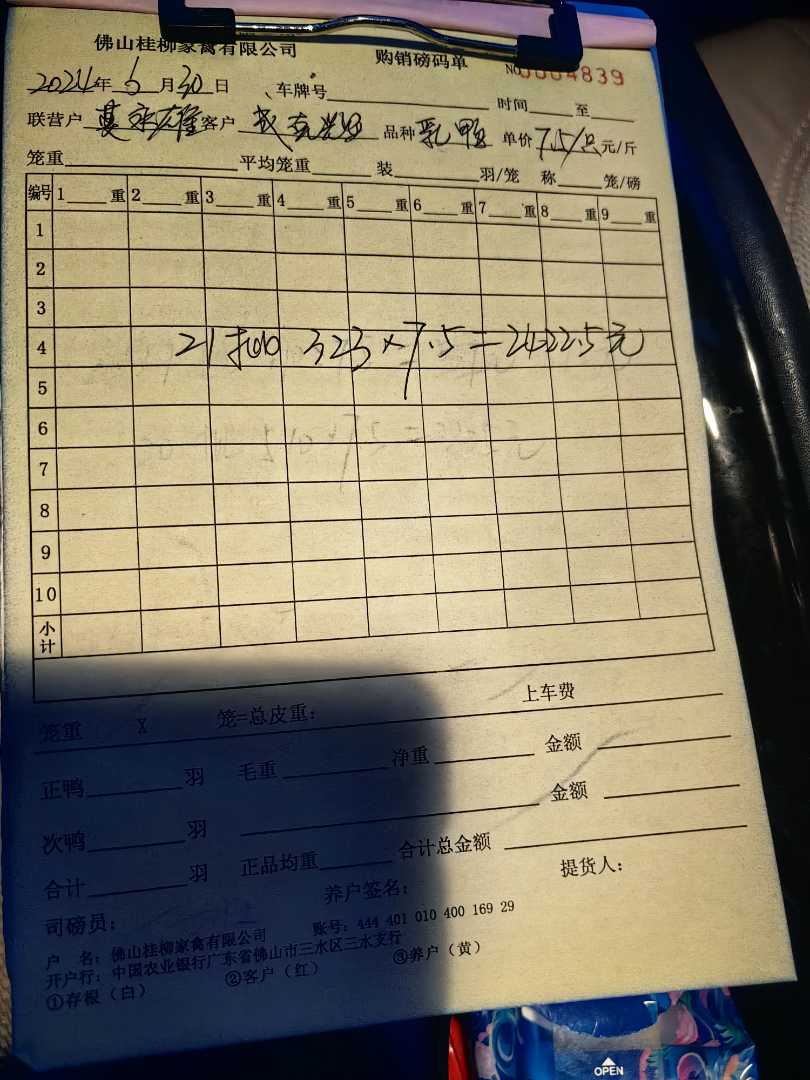 佛山桂柳家禽有限公司 购销磅码单 NO 0004839
2024年6月30日 车牌号 时间 至
联营户 莫 雄 客户 品种 乳鸭 单价 7.5/只 元/斤
笼重 平均笼重 装 羽/笼 称 笼/磅
编号 1 重 2 重 3 重 4 重 5 重 6 重 7 重 8 重 9 重
1
2
3
4 21 323×7.5=2422.5元
5
6
7
8
9
10
小计
笼重 X 笼=总皮重: 上车费
正鸭 羽 毛重 净重 金额
次鸭 羽 金额
合计 羽 正品均重 合计总金额
司磅员: 养户签名: 提货人:
户 名: 佛山桂柳家禽有限公司 账号: 444 401 010 400 169 29
开户行: 中国农业银行广东省佛山市三水区三水支行
①存根(白) ②客户(红) ③养户(黄)
OPEN